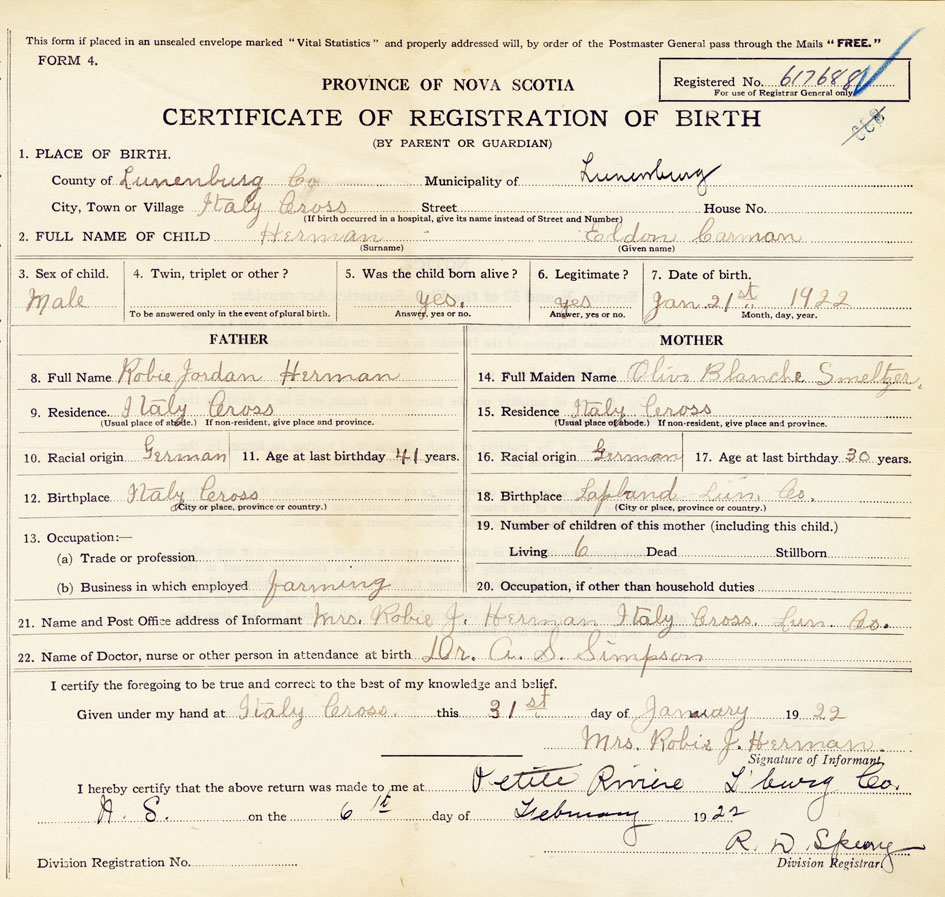 This form if placed in an unsealed envelope marked "Vital Statistics" and properly addressed will, by order of the Postmaster General pass through the Mails "FREE."
FORM 4.
Registered No. 617688
For use of Registrar General only
PROVINCE OF NOVA SCOTIA
CERTIFICATE OF REGISTRATION OF BIRTH
(BY PARENT OR GUARDIAN)
1. PLACE OF BIRTH.
County of Lunenburg Co Municipality of Lunenburg
City, Town or Village Italy Cross Street House No.
(If birth occurred in a hospital, give its name instead of Street and Number)
2. FULL NAME OF CHILD Herman Eldon Carman
(Surname) (Given name)
3. Sex of child. 4. Twin, triplet or other? 5. Was the child born alive? 6. Legitimate? 7. Date of birth.
Male yes. yes Jan. 21st 1922
To be answered only in the event of plural birth. Answer, yes or no. Answer, yes or no. Month, day, year.
FATHER MOTHER
8. Full Name Robie Jordan Herman 14. Full Maiden Name Olive Blanche Smeltzer.
9. Residence. Italy Cross 15. Residence Italy Cross
(Usual place of abode.) If non-resident, give place and province. (Usual place of abode.) If non-resident, give place and province.
10. Racial origin German 11. Age at last birthday 41 years. 16. Racial origin German 17. Age at last birthday 30 years.
12. Birthplace Italy Cross 18. Birthplace Lapland Lun. Co.
(City or place, province or country.) (City or place, province or country.)
13. Occupation:— 19. Number of children of this mother (including this child.)
(a) Trade or profession Living 6 Dead Stillborn
(b) Business in which employed farming 20. Occupation, if other than household duties
21. Name and Post Office address of Informant Mrs. Robie J. Herman Italy Cross. Lun. Co.
22. Name of Doctor, nurse or other person in attendance at birth Dr. A. S. Simpson
I certify the foregoing to be true and correct to the best of my knowledge and belief.
Given under my hand at Italy Cross. this 31st day of January 1922
Mrs. Robie J. Herman.
Signature of Informant,
I hereby certify that the above return was made to me at Petite Riviere L'burg Co.
N. S. on the 6 day of February 1922
R. D.
Division Registrar
Division Registration No.